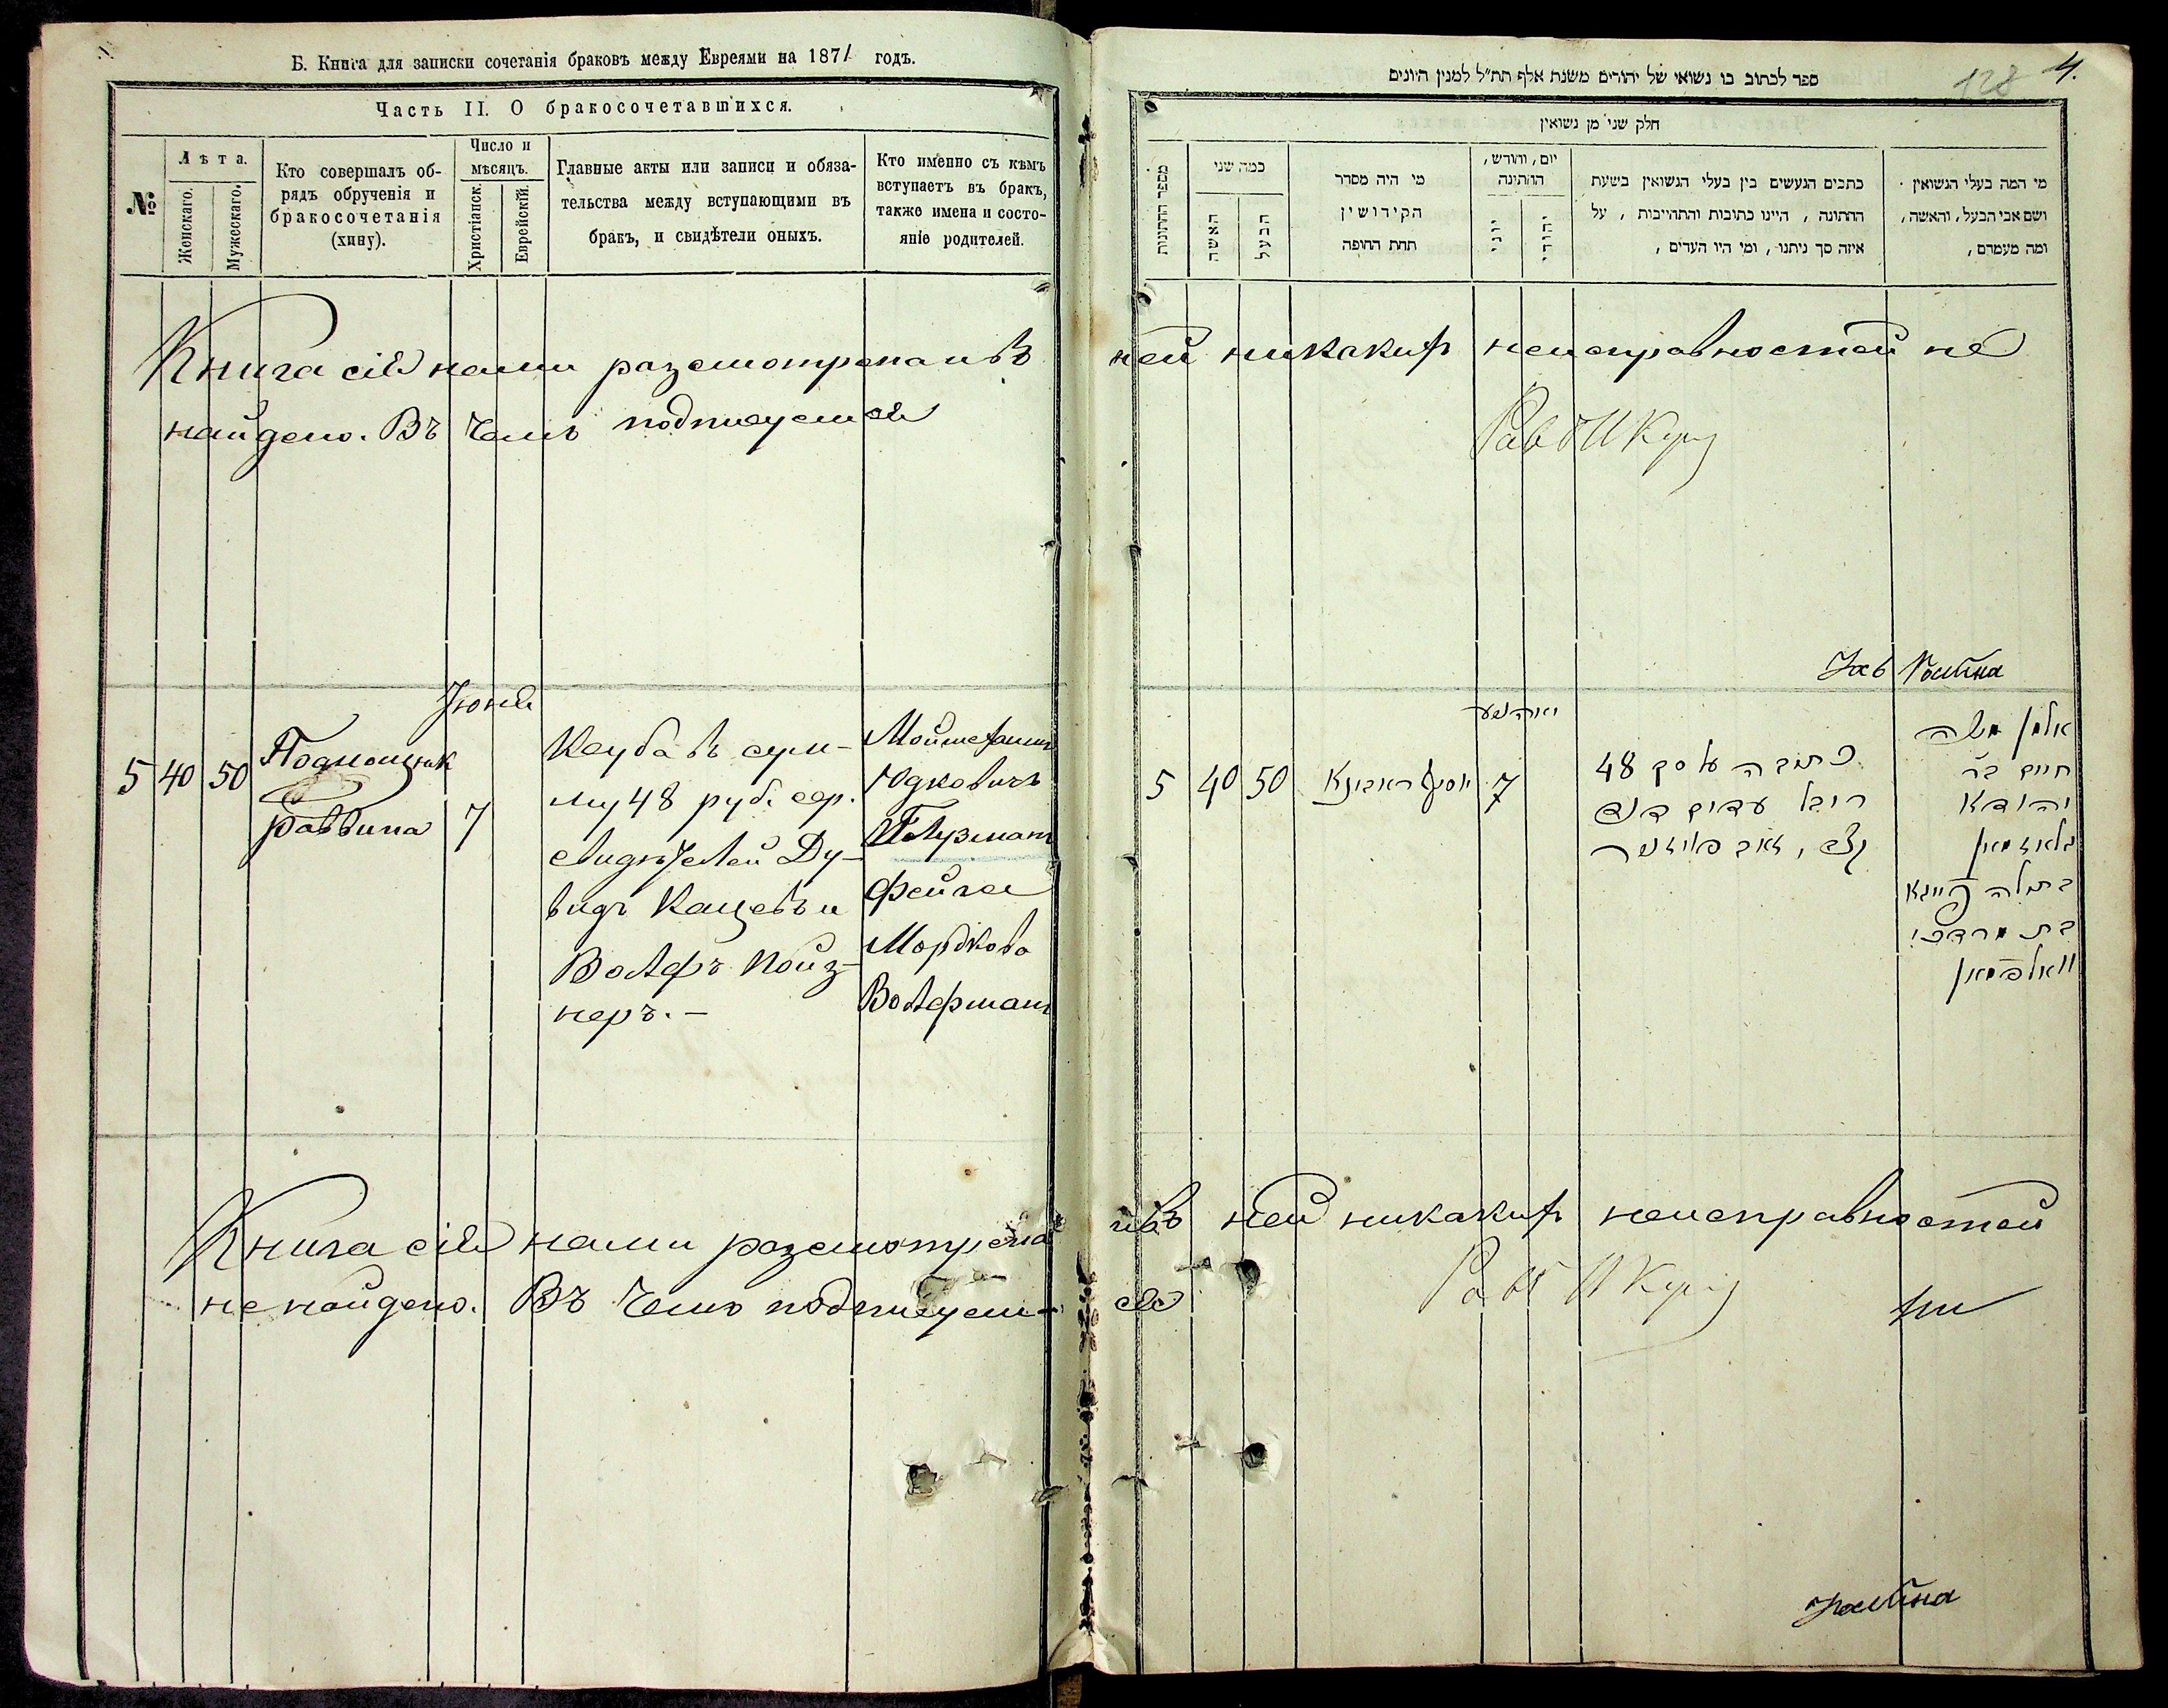 Б. Книга для записки сочетанія браковъ между Евреями на 1871 годъ.
Часть II. О бракосочетавшихся.
№
Лѣта.
Женскаго.
Мужескаго.
Кто совершалъ об-
рядъ обрученія и
бракосочетанія
(хипу).
Число и
мѣсяцъ.
Христіанск.
Еврейскій.
Главные акты или записи и обяза-
тельства между вступающими въ
бракъ, и свидѣтели оныхъ.
Кто именно съ кѣмъ
вступаетъ въ бракъ,
также имена и состо-
яніе родителей.
Книга сія нами разсмотрена и въ
найдено. Въ чемъ подписуемся
Іюня
5 40 50
Подпомощник
раввина
7
Кеуба въ сум-
му 48 руб. сер.
Ду-
видъ Кацевъ и
Вольфъ Пойз-
неръ. –
Мойше Хаимъ
Юдковичъ
Глузманъ
Фейга
Мордкова
Вольфманъ
Книга сія нами разсмотрена
не найдено. Въ чемъ подписуем-
ספר לכתוב בו נשואי של יהודים משנת אלף תת״ל למנין היונים
128
4.
חלק שני מן נשואין
מספר החתונות
כמה שני
האשה
הבעל
מי היה מסדר
הקידושין
תחת החופה
יום, וחורש,
החתונה
יוני
יהודי
כתבים הנעשים בין בעלי הנשואין בשעת
החתונה, היינו כתובות והתחייבות, על
איזה סך ניתנו, ומי היו העדים,
מי המה בעלי הנשואין
ושם אבי הבעל, והאשה,
ומה מעמדם,
ней никакихъ неисправностей не
Раб
5 40 50
7
כתובה על סך 48
רובל עדים דוד
כץ, זאב פויזנער
אלמן משה
חיים בר
יהודא
גלוזמאן
בתולה פייגא
בת מרדכי
וואלפמאן
и въ ней никакихъ неисправностей
ся